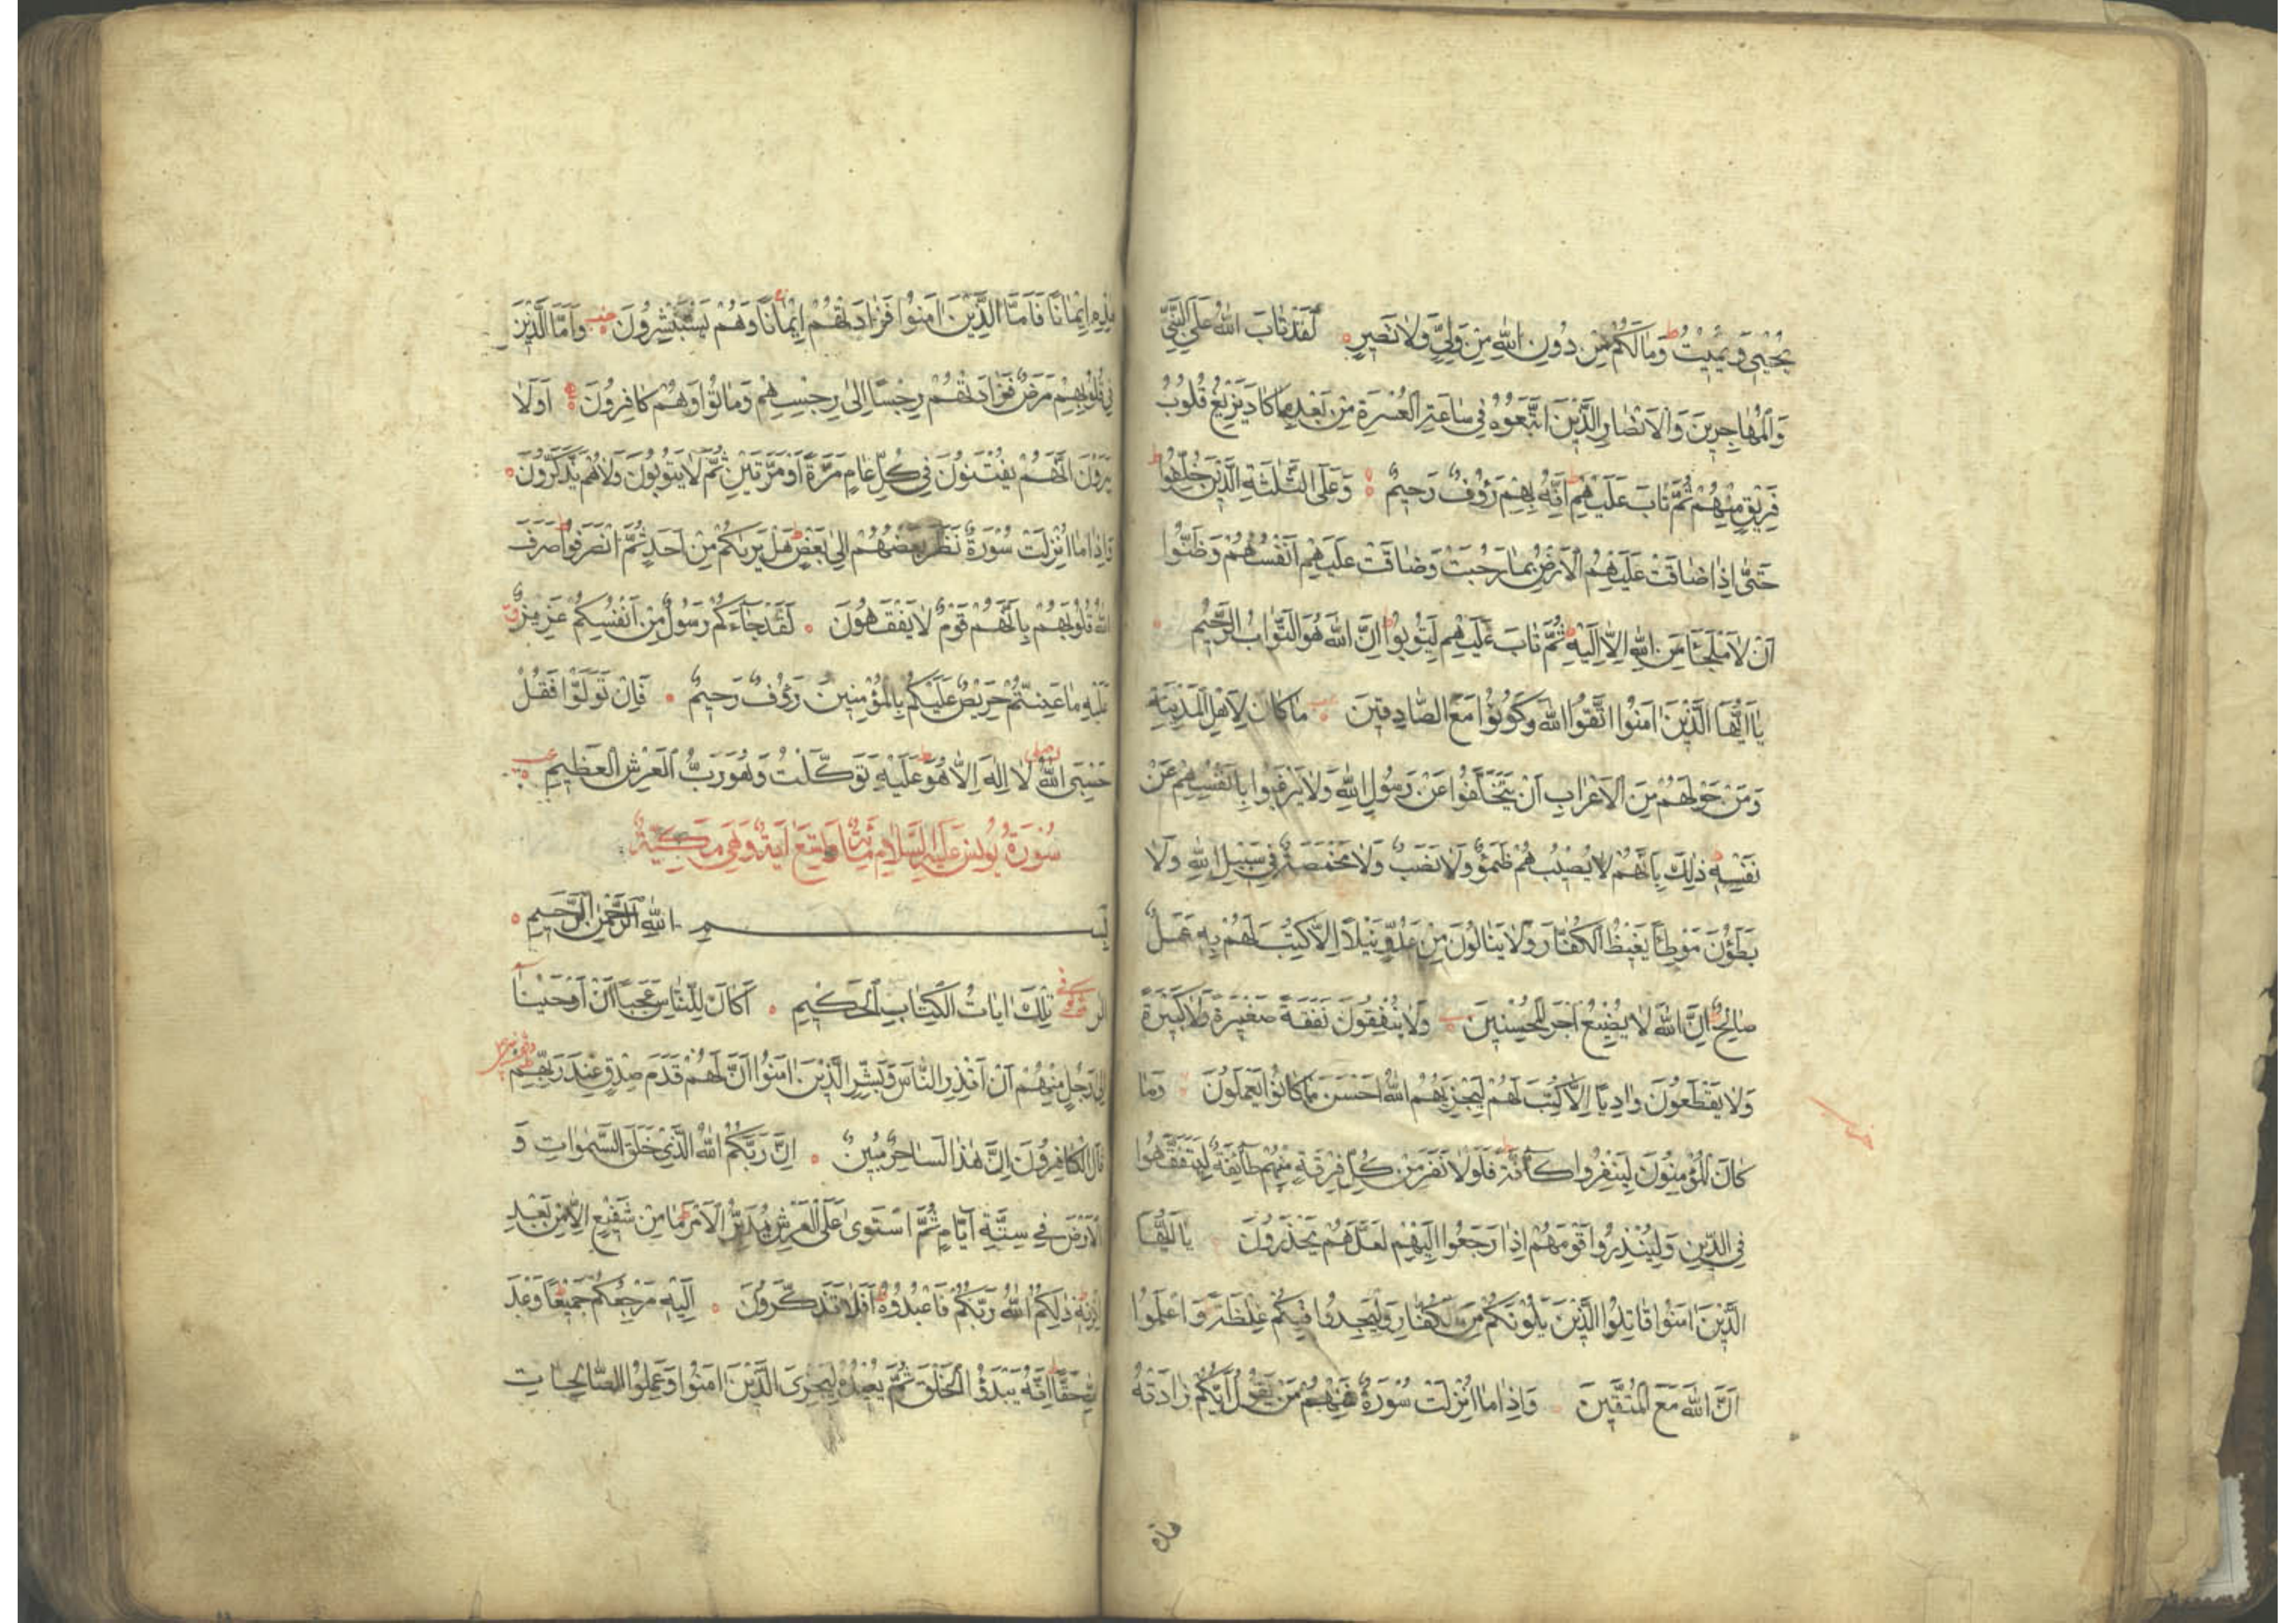 يُحْيِي وَيُمِيتُ ط وَمَا لَكُمْ مِنْ دُونِ اللّٰهِ مِنْ وَلِيٍّ وَلَا نَصِيرٍ لَقَدْ تَابَ اللّٰهُ عَلَى النَّبِيِّ
وَالْمُهَاجِرِينَ وَالْاَنْصَارِ الَّذِينَ اتَّبَعُوهُ فِي سَاعَةِ الْعُسْرَةِ مِنْ بَعْدِ مَا كَادَ يَزِيغُ قُلُوبُ
فَرِيقٍ مِنْهُمْ ثُمَّ تَابَ عَلَيْهِمْ ط اِنَّهُ بِهِمْ رَؤُفٌ رَحِيمٌ وَعَلَى الثَّلٰثَةِ الَّذِينَ خُلِّفُوا ط
حَتّٰى اِذَا ضَاقَتْ عَلَيْهِمُ الْاَرْضُ بِمَا رَحُبَتْ وَضَاقَتْ عَلَيْهِمْ اَنْفُسُهُمْ وَظَنُّوا
اَنْ لَا مَلْجَاَ مِنَ اللّٰهِ اِلَّا اِلَيْهِ ط ثُمَّ تَابَ عَلَيْهِمْ لِيَتُوبُوا ط اِنَّ اللّٰهَ هُوَ التَّوَّابُ الرَّحِيمُ
يَا اَيُّهَا الَّذِينَ اٰمَنُوا اتَّقُوا اللّٰهَ وَكُونُوا مَعَ الصَّادِقِينَ مَا كَانَ لِاَهْلِ الْمَدِينَةِ
وَمَنْ حَوْلَهُمْ مِنَ الْاَعْرَابِ اَنْ يَتَخَلَّفُوا عَنْ رَسُولِ اللّٰهِ وَلَا يَرْغَبُوا بِاَنْفُسِهِمْ عَنْ
نَفْسِهِ ط ذٰلِكَ بِاَنَّهُمْ لَا يُصِيبُهُمْ ظَمَؤٌ وَلَا نَصَبٌ وَلَا مَخْمَصَةٌ فِي سَبِيلِ اللّٰهِ وَلَا
يَطَؤُنَ مَوْطِئًا يَغِيظُ الْكُفَّارَ وَلَا يَنَالُونَ مِنْ عَدُوٍّ نَيْلًا اِلَّا كُتِبَ لَهُمْ بِهِ عَمَلٌ
صَالِحٌ ط اِنَّ اللّٰهَ لَا يُضِيعُ اَجْرَ الْمُحْسِنِينَ وَلَا يُنْفِقُونَ نَفَقَةً صَغِيرَةً وَلَا كَبِيرَةً
وَلَا يَقْطَعُونَ وَادِيًا اِلَّا كُتِبَ لَهُمْ لِيَجْزِيَهُمُ اللّٰهُ اَحْسَنَ مَا كَانُوا يَعْمَلُونَ وَمَا
كَانَ الْمُؤْمِنُونَ لِيَنْفِرُوا كَافَّةً ط فَلَوْلَا نَفَرَ مِنْ كُلِّ فِرْقَةٍ مِنْهُمْ طَائِفَةٌ لِيَتَفَقَّهُوا
فِي الدِّينِ وَلِيُنْذِرُوا قَوْمَهُمْ اِذَا رَجَعُوا اِلَيْهِمْ لَعَلَّهُمْ يَحْذَرُونَ يَا اَيُّهَا
الَّذِينَ اٰمَنُوا قَاتِلُوا الَّذِينَ يَلُونَكُمْ مِنَ الْكُفَّارِ وَلْيَجِدُوا فِيكُمْ غِلْظَةً ط وَاعْلَمُوا
اَنَّ اللّٰهَ مَعَ الْمُتَّقِينَ وَاِذَا مَا اُنْزِلَتْ سُورَةٌ فَمِنْهُمْ مَنْ يَقُولُ اَيُّكُمْ زَادَتْهُ
هٰذِهِ
هٰذِهِ اِيمَانًا فَاَمَّا الَّذِينَ اٰمَنُوا فَزَادَتْهُمْ اِيمَانًا وَهُمْ يَسْتَبْشِرُونَ وَاَمَّا الَّذِينَ
فِي قُلُوبِهِمْ مَرَضٌ فَزَادَتْهُمْ رِجْسًا اِلٰى رِجْسِهِمْ وَمَاتُوا وَهُمْ كَافِرُونَ اَوَلَا
يَرَوْنَ اَنَّهُمْ يُفْتَنُونَ فِي كُلِّ عَامٍ مَرَّةً اَوْ مَرَّتَيْنِ ثُمَّ لَا يَتُوبُونَ وَلَا هُمْ يَذَّكَّرُونَ
وَاِذَا مَا اُنْزِلَتْ سُورَةٌ نَظَرَ بَعْضُهُمْ اِلٰى بَعْضٍ ط هَلْ يَرٰيكُمْ مِنْ اَحَدٍ ثُمَّ انْصَرَفُوا ط صَرَفَ
اللّٰهُ قُلُوبَهُمْ بِاَنَّهُمْ قَوْمٌ لَا يَفْقَهُونَ لَقَدْ جَاءَكُمْ رَسُولٌ مِنْ اَنْفُسِكُمْ عَزِيزٌ
عَلَيْهِ مَا عَنِتُّمْ حَرِيصٌ عَلَيْكُمْ بِالْمُؤْمِنِينَ رَؤُفٌ رَحِيمٌ فَاِنْ تَوَلَّوْا فَقُلْ
حَسْبِيَ اللّٰهُ لَا اِلٰهَ اِلَّا هُوَ ط عَلَيْهِ تَوَكَّلْتُ وَهُوَ رَبُّ الْعَرْشِ الْعَظِيمِ
سُورَةُ يُونُسَ عَلَيْهِ السَّلَامُ مِائَةٌ وَتِسْعُ اٰيَةٍ وَهِيَ مَكِّيَّةٌ
بِسْمِ اللّٰهِ الرَّحْمٰنِ الرَّحِيمِ
الٓرٰ تِلْكَ اٰيَاتُ الْكِتَابِ الْحَكِيمِ اَكَانَ لِلنَّاسِ عَجَبًا اَنْ اَوْحَيْنَا
اِلٰى رَجُلٍ مِنْهُمْ اَنْ اَنْذِرِ النَّاسَ وَبَشِّرِ الَّذِينَ اٰمَنُوا اَنَّ لَهُمْ قَدَمَ صِدْقٍ عِنْدَ رَبِّهِمْ
قَالَ الْكَافِرُونَ اِنَّ هٰذَا لَسَاحِرٌ مُبِينٌ اِنَّ رَبَّكُمُ اللّٰهُ الَّذِي خَلَقَ السَّمٰوَاتِ وَ
الْاَرْضَ فِي سِتَّةِ اَيَّامٍ ثُمَّ اسْتَوٰى عَلَى الْعَرْشِ يُدَبِّرُ الْاَمْرَ ط مَا مِنْ شَفِيعٍ اِلَّا مِنْ بَعْدِ
اِذْنِهِ ط ذٰلِكُمُ اللّٰهُ رَبُّكُمْ فَاعْبُدُوهُ ط اَفَلَا تَذَكَّرُونَ اِلَيْهِ مَرْجِعُكُمْ جَمِيعًا ط وَعْدَ
اللّٰهِ حَقًّا ط اِنَّهُ يَبْدَؤُ الْخَلْقَ ثُمَّ يُعِيدُهُ لِيَجْزِيَ الَّذِينَ اٰمَنُوا وَعَمِلُوا الصَّالِحَاتِ